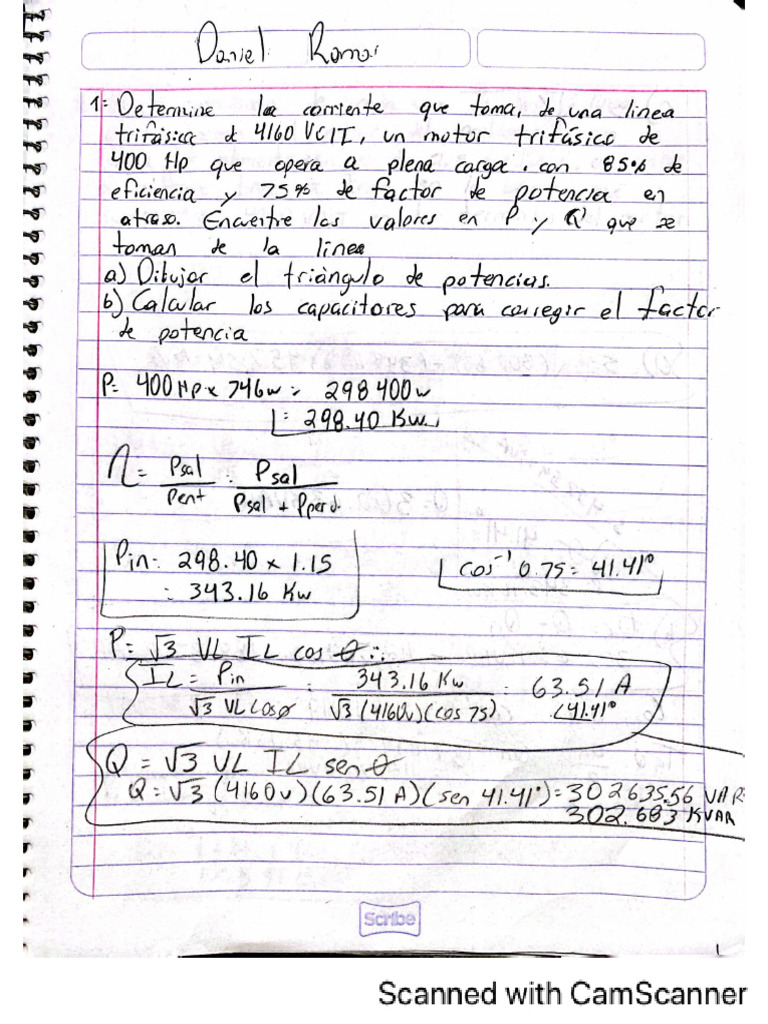 Daniel Ramos
1: Determine la corriente que toma, de una linea
trifásica d 4160 VCIT, un motor trifásico de
400 Hp que opera a plena carga. con 85% de
eficiencia y 75% de factor de potencia en
atraso. Encuentre los valores en P y Q que se
toman de la linea
a) Dibujar el triángulo de potencias.
b) Calcular los capacitores para corregir el factor
de potencia
P= 400 HP x 746w = 298 400w
= 298.40 Kw.
η = Psal / Pent = Psal / Psal + Pperd.
Pin = 298.40 x 1.15
= 343.16 Kw
cos⁻¹ 0.75 = 41.41°
P = √3 VL IL cos θ ∴
IL = Pin / √3 VL Cosθ = 343.16 Kw / √3 (4160v)(cos 75) = 63.51 A
∠41.41°
Q = √3 VL IL sen θ
Q = √3 (4160v)(63.51 A)(sen 41.41°) = 302635.56 VAR
302.683 KVAR
Scribe
1
Scanned with CamScanner